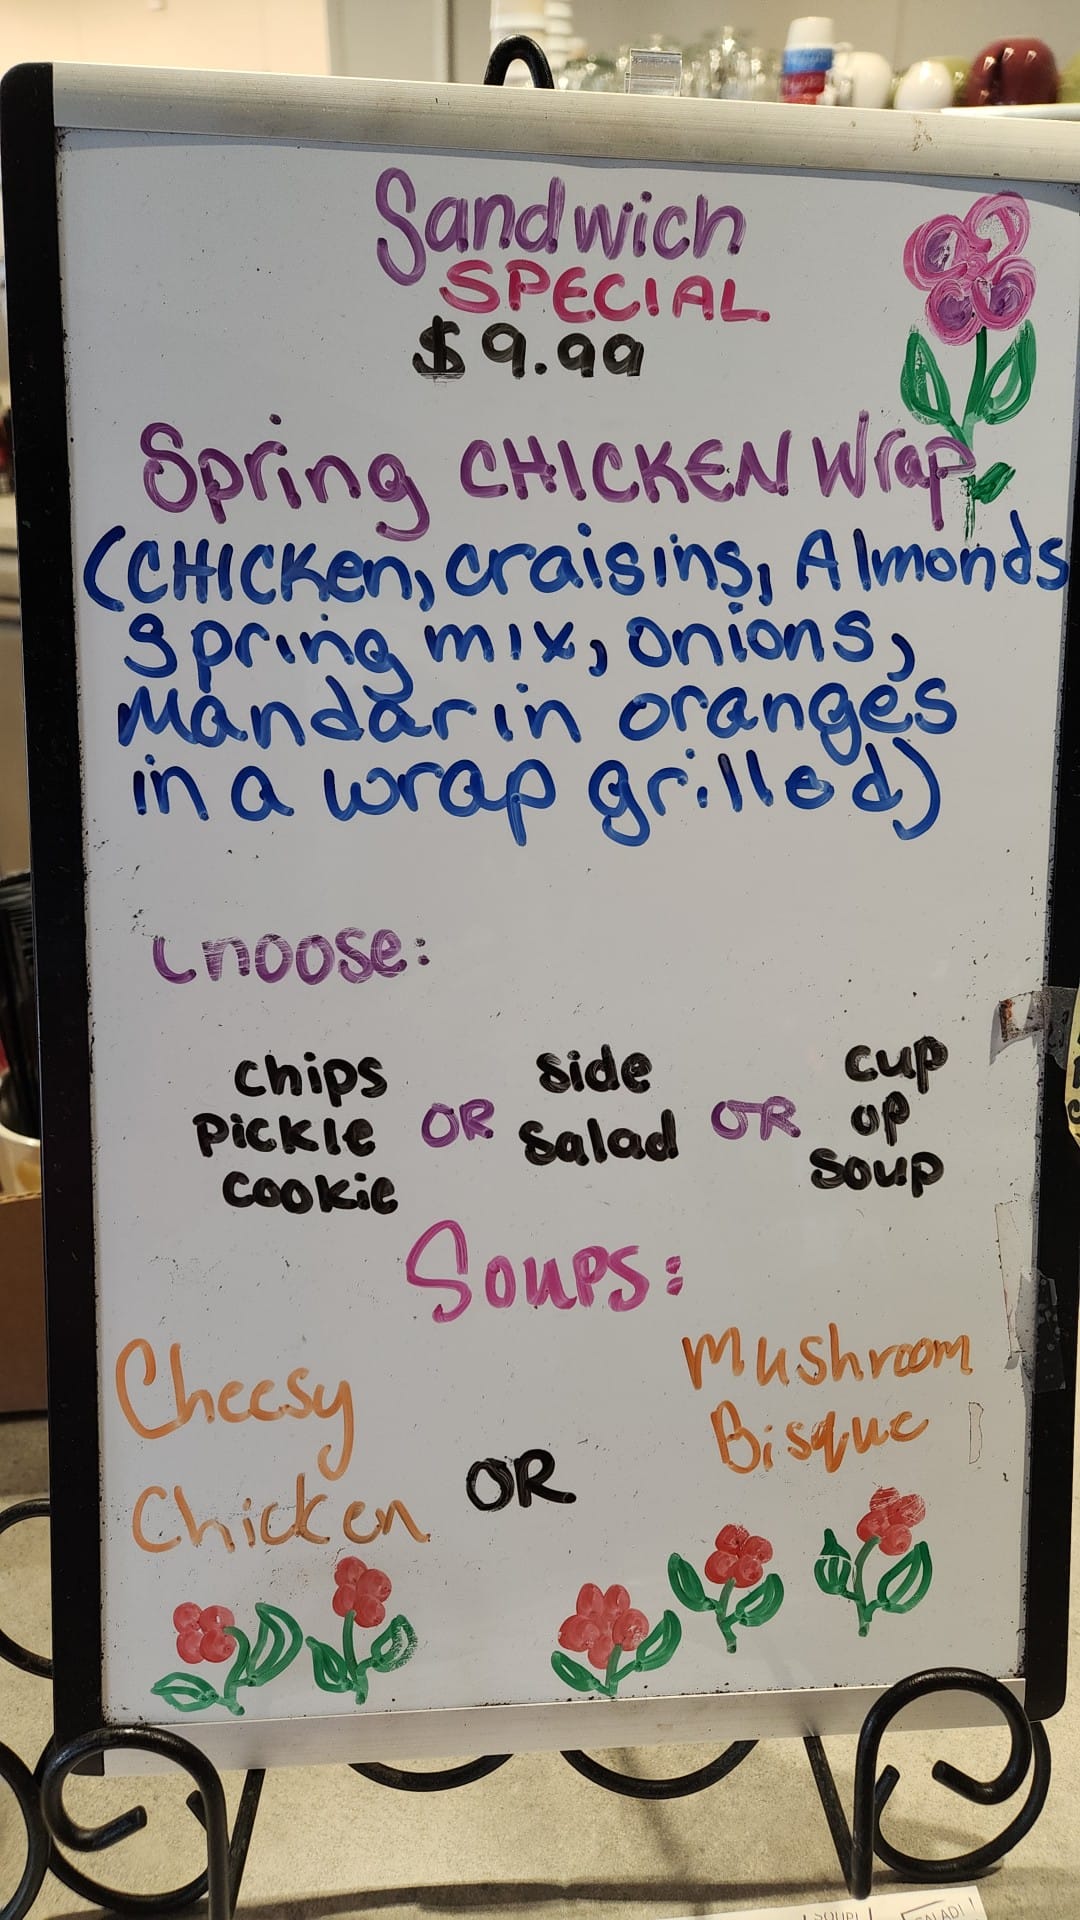 Sandwich
SPECIAL
$9.99
Spring CHICKEN Wrap
(CHICKen, craisins, Almonds
spring mix, onions,
Mandarin oranges
in a wrap grilled)
Choose:
chips
Pickle
cookie
OR
side
salad
OR
cup
op
soup
Soups:
Cheesy
Chicken
OR
Mushroom
Bisque
SOUP!
SALAD!